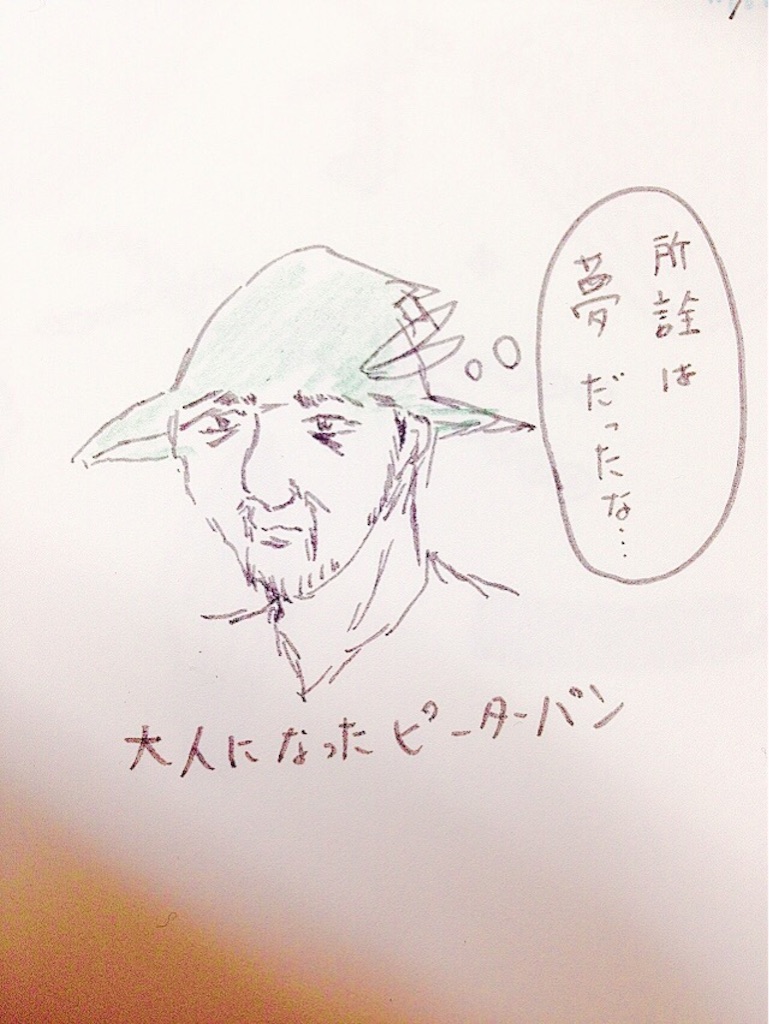 所詮は
夢だったな…
大人になったピーターパン